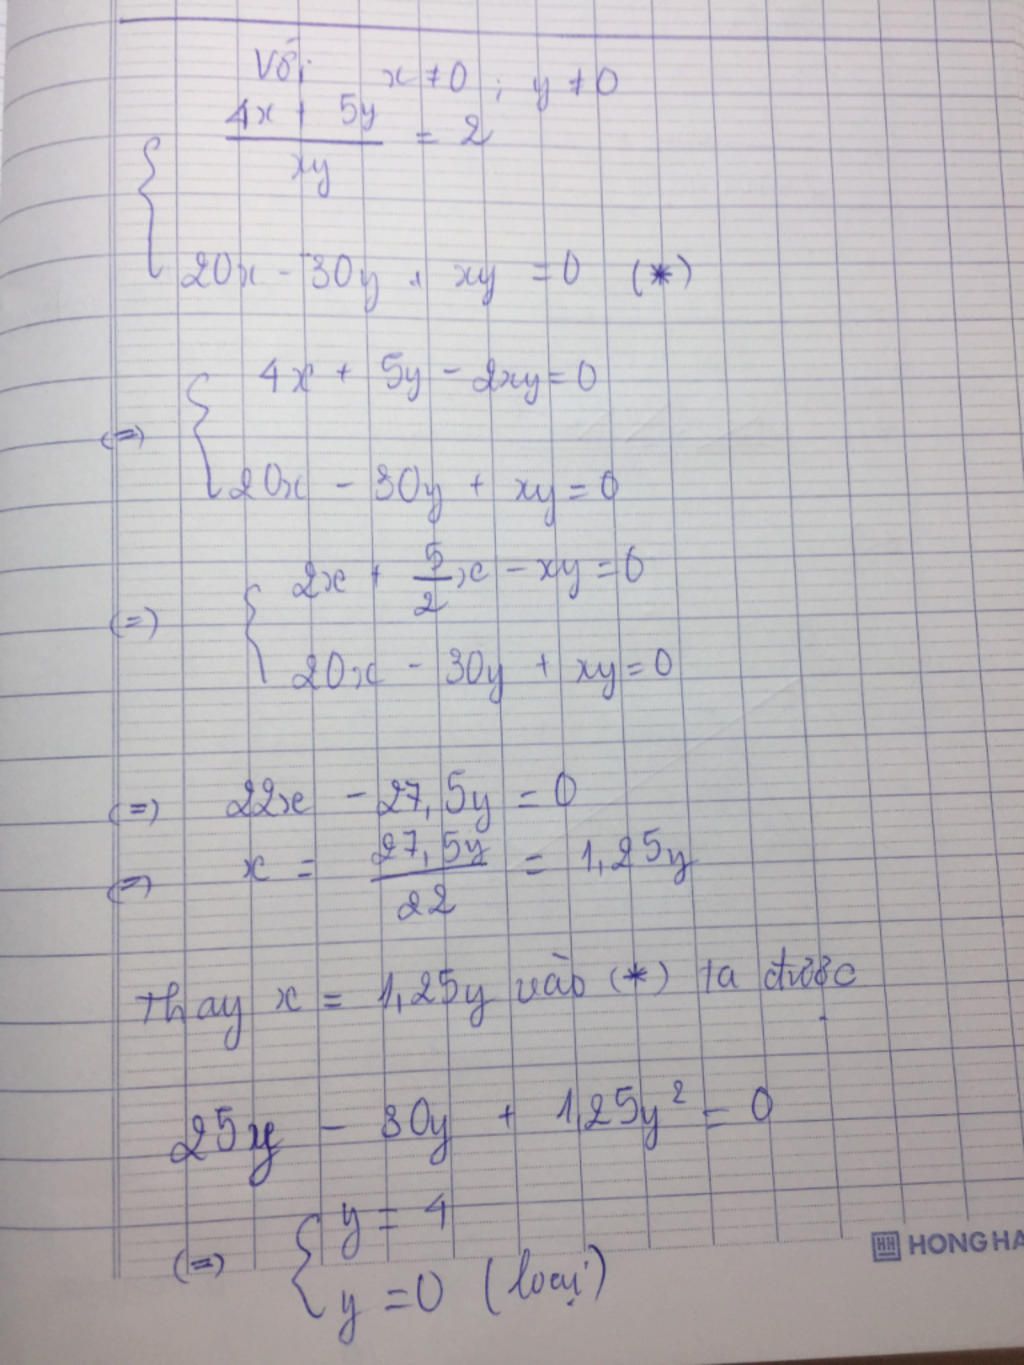 Với x ≠ 0 ; y ≠ 0
{ (4x + 5y)/(xy) = 2
20x - 30y + xy = 0 (*)
(=) { 4x + 5y - 2xy = 0
20x - 30y + xy = 0
(=) { 2x + 5/2 x - xy = 0
20x - 30y + xy = 0
(=) 22x - 27,5y = 0
(=) x = 27,5y/22 = 1,25y
Thay x = 1,25y vào (*) ta được
25y - 30y + 1,25y² = 0
(=) { y = 4
y = 0 (loại)
HONG HA